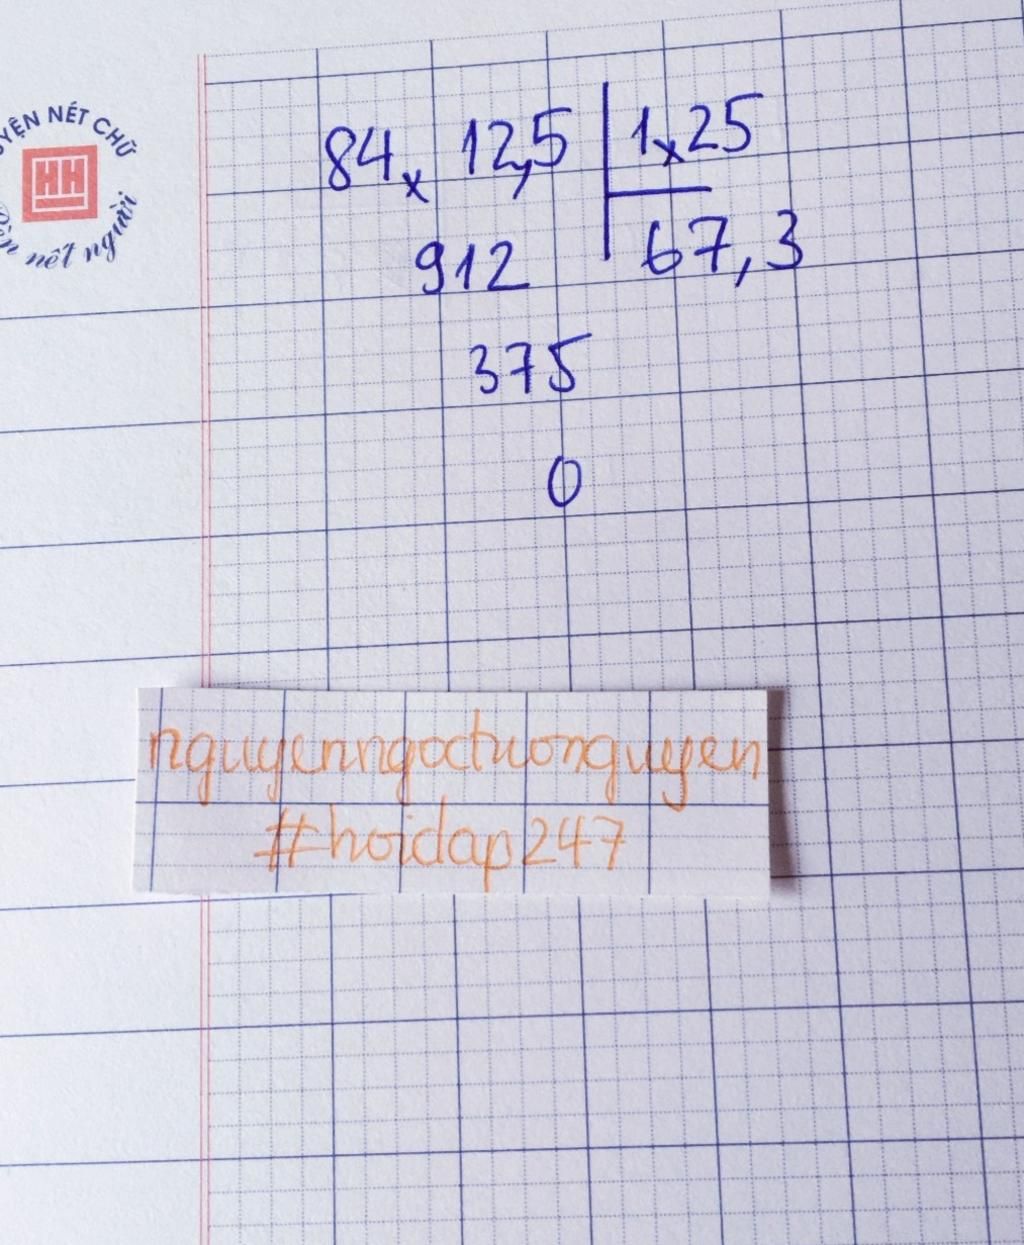 YỆN NÉT CHỮ
HH
nết người
84x 12,5 1x25
912 67,3
375
0
nguyenngoctuonguyen
#hoidap247